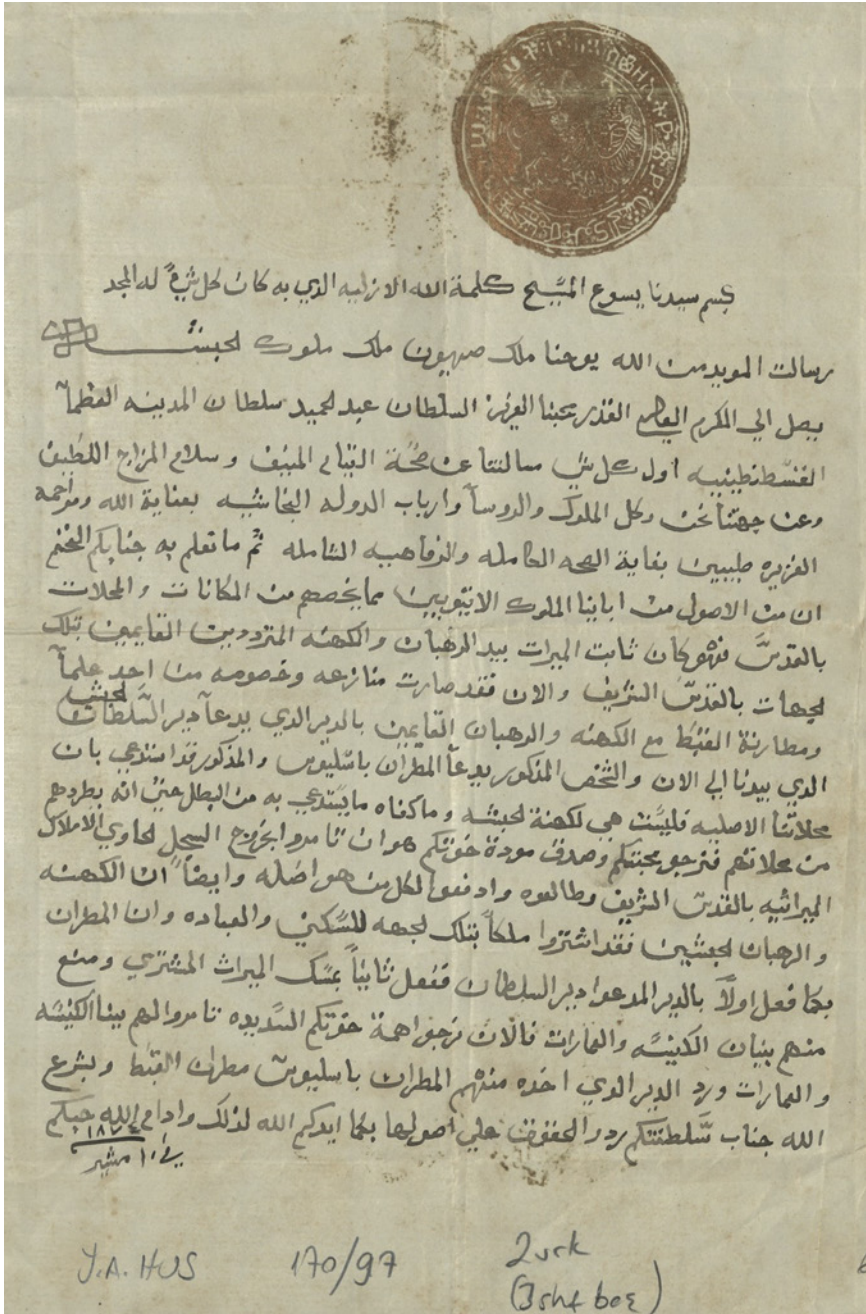 بسم سيدنا يسوع المسيح كلمة الاه الازليه الذي به كان كل شيءً له المجد
رسالت المويد من الله يوحنا ملك صهيون ملك ملوك لحبشه
يصل الي المكرم القدر محبنا العزيز السلطان عبد لحميد سلطان المدينه العظما
القسطنطينيه اول كل شي سالتنا عن صحة المنيف وسلام المزاج اللطيف
وعن جهتنا نحن وكل الملوك والروسا وارباب الدوله النجاشيه بعناية الله ومراحمه
الغزيره طيبين بغاية الصحه الكامله والرفاهيه الشامله ثم ما نعلم به جنابكم الفخم
ان من الاصول من اباينا الملوك الاتيوبيين مما يخصهم من المكانات والمحلات
بالقدس فهو كان ثابت الميرات بيد الرهبان والكهنه المترددين القايمين بتلك
لجهات بالقدس الشريف والان فقد صارت منازعه وخصومه من احد علما
ومطارنة القبط مع الكهنه والرهبان لحبش القايمين بالدير الذي يدعا دير السلطان
الذي بيدنا الي الان والشخص المذكور يدعا المطران باسليوس والمذكور قد استدعي بان
محلاتنا الاصليه فليست هي لكهنة لحبشه وما كفاه ما يستدعي به من البطل حتي انه يطردهم
من محلاتهم فنرجو محبتكم وصدق مودة خوتكم هو ان تامروا بخروج السجل لحاوي الاملاك
الميراثيه بالقدس الشريف وطالعوه وادفعوا لكل من هو اصله وايضاً ان الكهنه
والرهبان لحبشين فقد اشتروا ملكاً بتلك لجهه للسكن والعباده وان المطران
بكما فعل اولاً بالدير المدعوا دير السلطان ففعل ثانياً بمسك الميراث المشتري ومنع
منهم بنيان الكنيسه والعمارات فالان نرجوا همة خوتكم السديده تامروا لهم ببنا الكنيسه
والعمارات ورد الدير الذي اخده منهم المطران باسليوس مطران القبط وبشرع
الله جناب سلطنتكم ردوا الحقوق علي اصولها بكما ايدكم الله لذلك وادام الله حبكم
في ١٠ مشير
Y.A. HUS
170/97
2 vrk